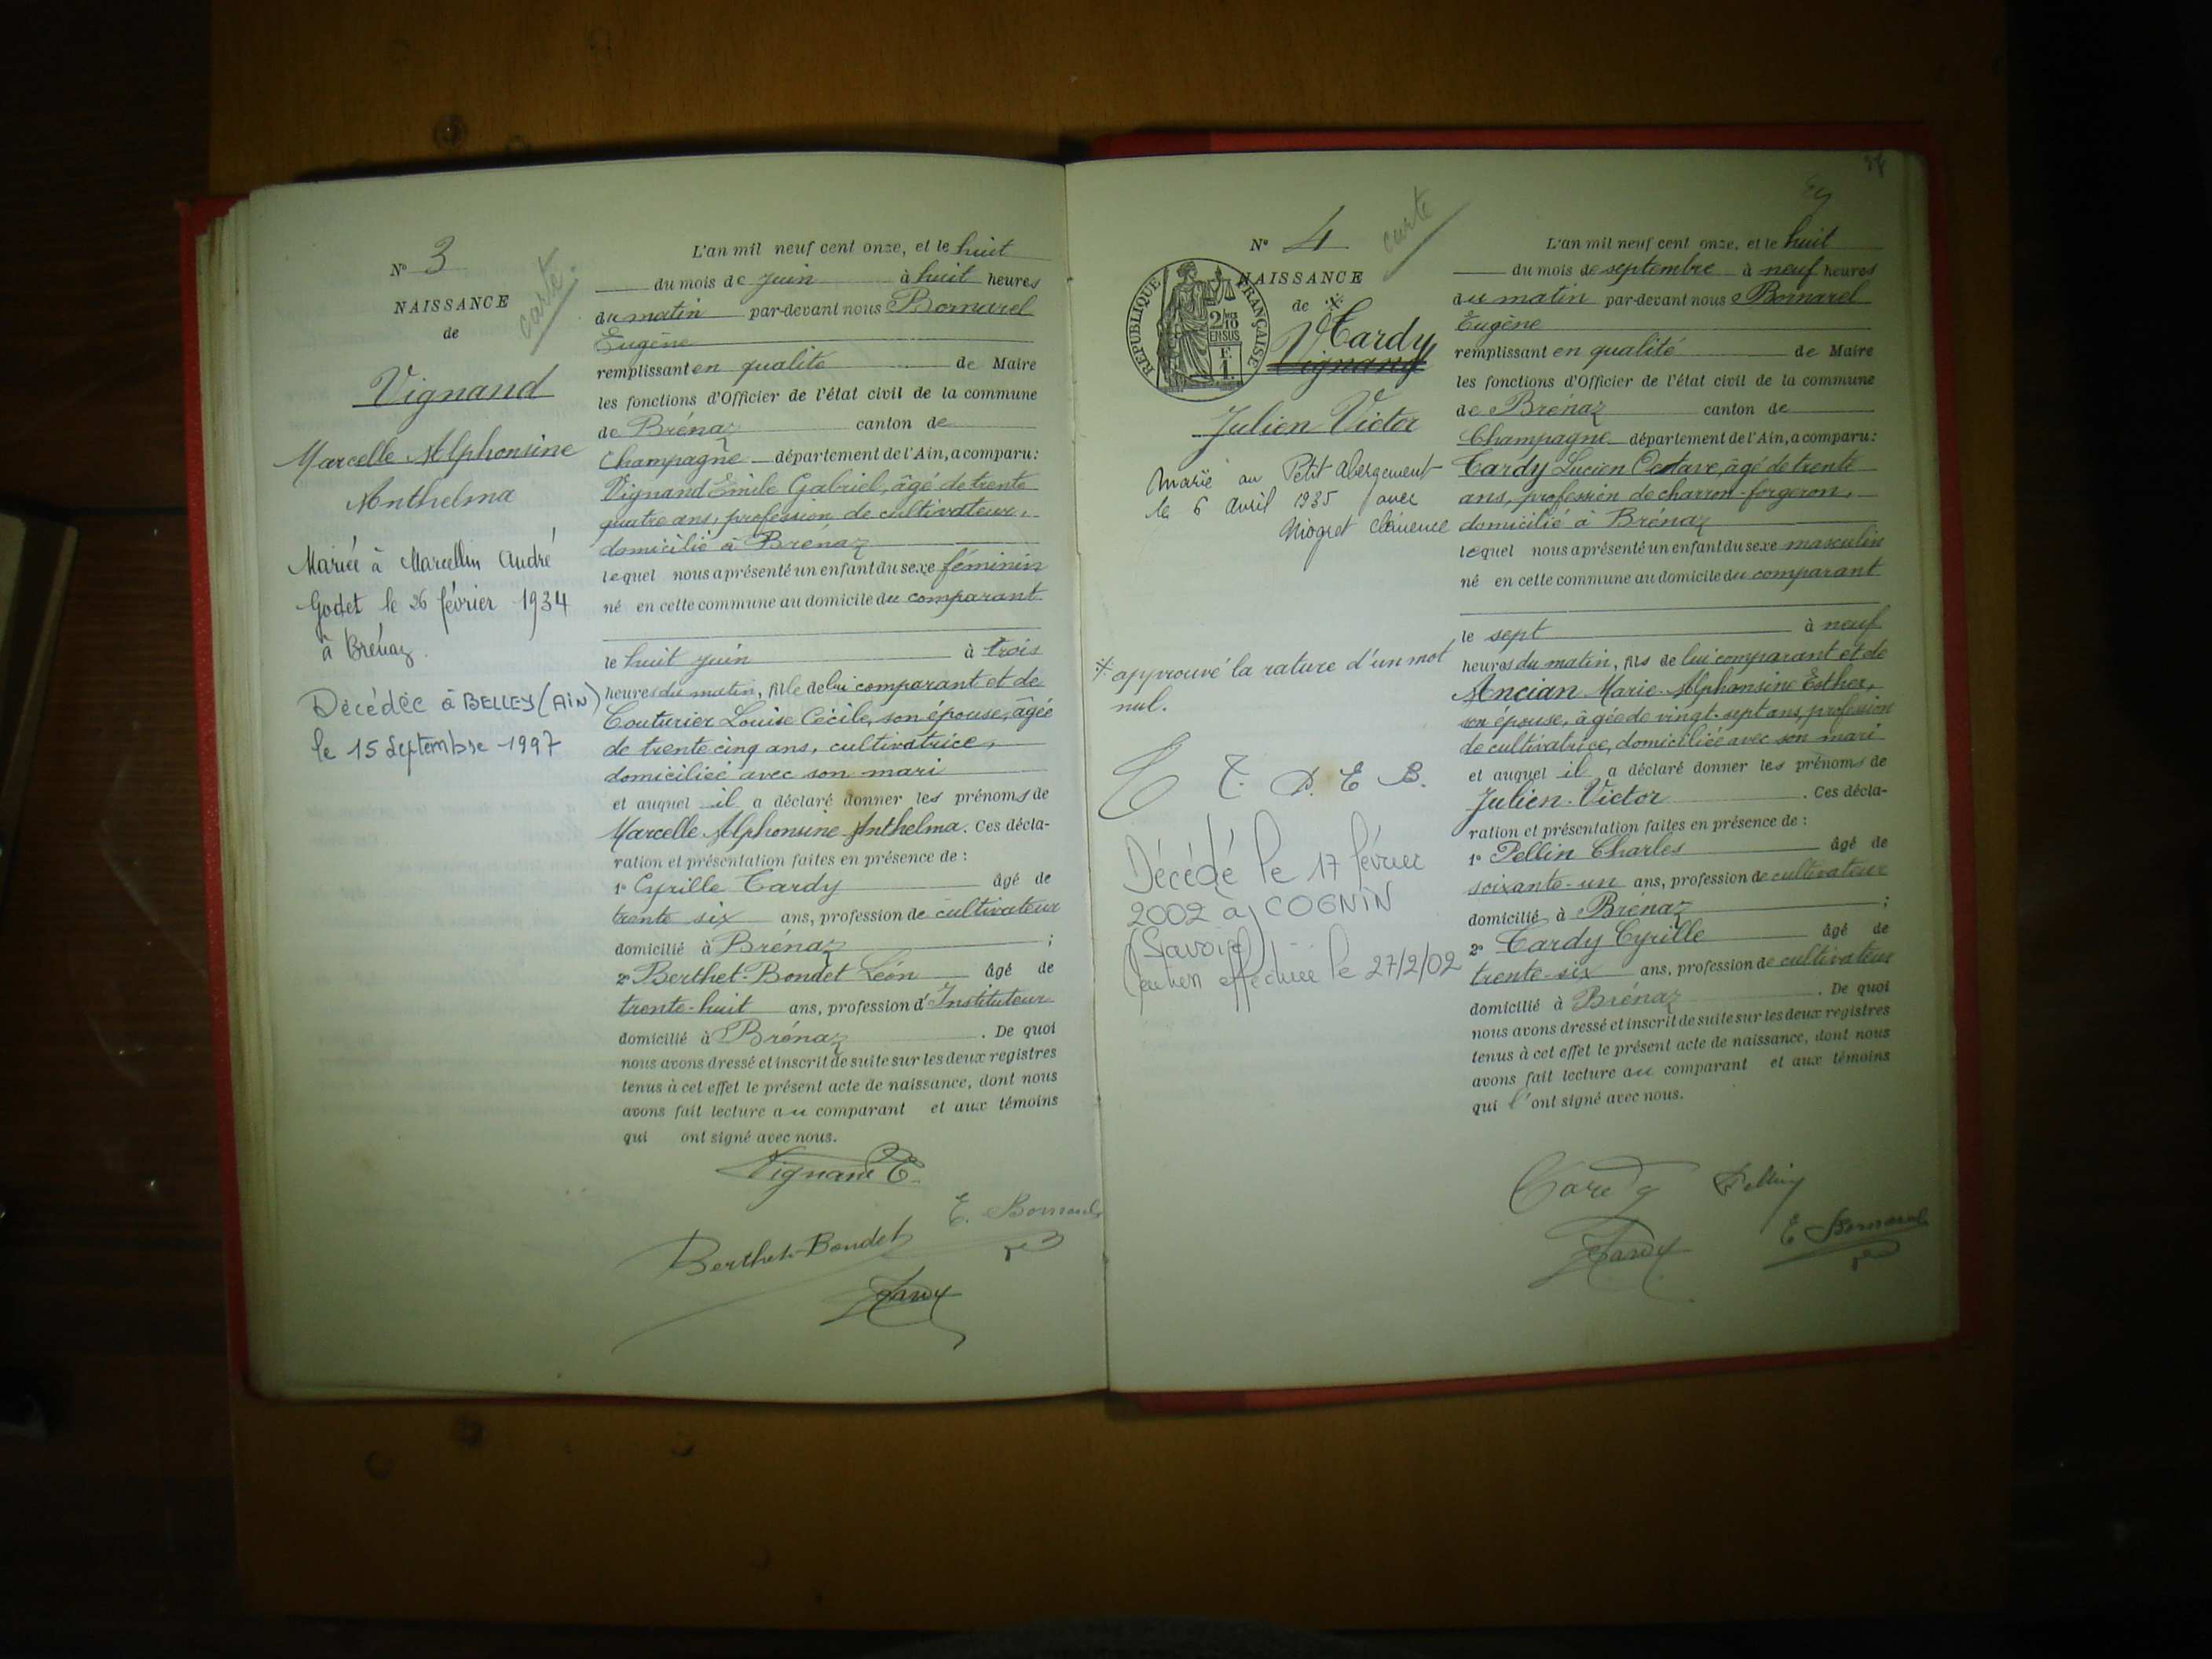 N° 3
carte.
NAISSANCE
de
Vignand
Marcelle Alphonsine
Anthelma
Mariée à Marcellin André
Godet le 26 février 1934
à Brénaz.
Décédée à BELLEY (AIN)
le 15 Septembre 1997
L'an mil neuf cent onze, et le huit
du mois de juin à huit heures
du matin par-devant nous Bornarel
Eugène
remplissant en qualité de Maire
les fonctions d'Officier de l'état civil de la commune
de Brénaz canton de
Champagne département de l'Ain, a comparu:
Vignand Emile Gabriel, âgé de trente
quatre ans, profession de cultivateur,
domicilié à Brénaz
lequel nous a présenté un enfant du sexe féminin
né en cette commune au domicile du comparant
le huit juin à trois
heures du matin, fille de lui comparant et de
Couturier Louise Cécile, son épouse, âgée
de trente cinq ans, cultivatrice,
domiciliée avec son mari
et auquel il a déclaré donner les prénoms de
Marcelle Alphonsine Anthelma. Ces décla-
ration et présentation faites en présence de :
1° Cyrille Tardy âgé de
trente six ans, profession de cultivateur
domicilié à Brénaz ;
2° Berthet-Bondet Léon âgé de
trente-huit ans, profession d'Instituteur
domicilié à Brénaz . De quoi
nous avons dressé et inscrit de suite sur les deux registres
tenus à cet effet le présent acte de naissance, dont nous
avons fait lecture au comparant et aux témoins
qui ont signé avec nous.
Vignand E.
E. Bornarel
Berthet-Bondet
Tardy
N° 4
carte
NAISSANCE
de
REPUBLIQUE FRANÇAISE
2/10 EN SUS
Tardy
Vignand
Julien Victor
Marié au Petit Abergement
le 6 avril 1935 avec
Niogret Clémence
approuvé la rature d'un mot
nul.
T. D. E B.
Décédé le 17 février
2002 à COGNIN
(Savoie)
effectuée le 27/2/02
L'an mil neuf cent onze, et le huit
du mois de septembre à neuf heures
du matin par-devant nous Bornarel
Eugène
remplissant en qualité de Maire
les fonctions d'Officier de l'état civil de la commune
de Brénaz canton de
Champagne département de l'Ain, a comparu:
Tardy Lucien Octave, âgé de trente
ans, profession de charron-forgeron,
domicilié à Brénaz
lequel nous a présenté un enfant du sexe masculin
né en cette commune au domicile du comparant
le sept à neuf
heures du matin, fils de lui comparant et de
Ancian Marie-Alphonsine Esther,
son épouse, âgée de vingt-sept ans, profession
de cultivatrice, domiciliée avec son mari
et auquel il a déclaré donner les prénoms de
Julien-Victor . Ces décla-
ration et présentation faites en présence de :
1° Pellin Charles âgé de
soixante-un ans, profession de cultivateur
domicilié à Brénaz ;
2° Tardy Cyrille âgé de
trente-six ans, profession de cultivateur
domicilié à Brénaz . De quoi
nous avons dressé et inscrit de suite sur les deux registres
tenus à cet effet le présent acte de naissance, dont nous
avons fait lecture au comparant et aux témoins
qui l'ont signé avec nous.
Tardy Pellin
Tardy
E Bornarel